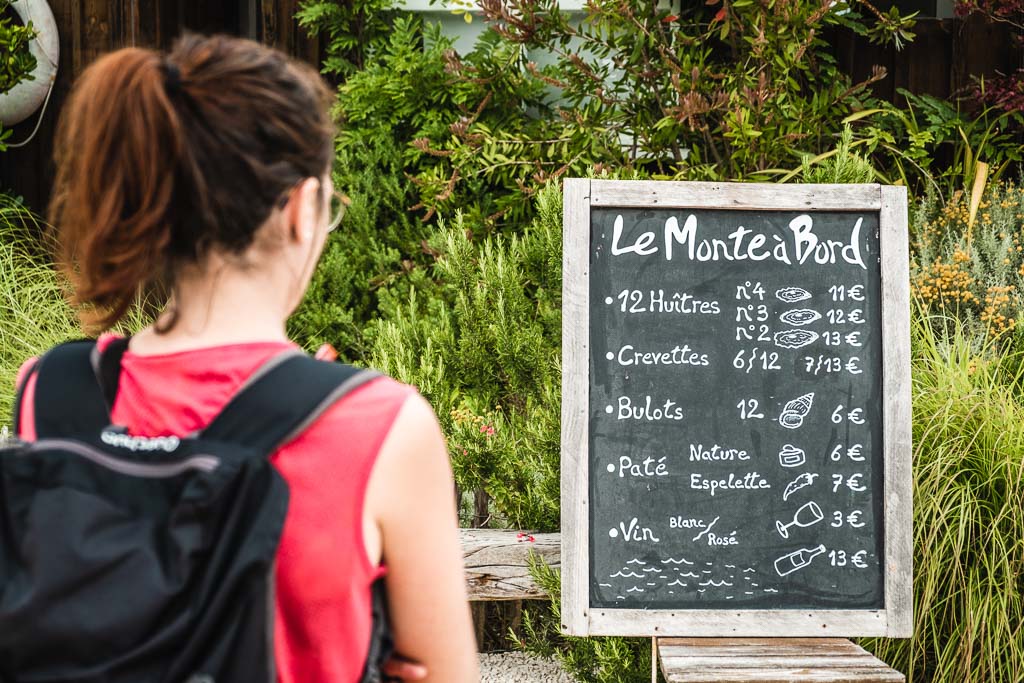 Le Monte à Bord
• 12 Huîtres n°4 11€
n°3 12€
n°2 13€
• Crevettes 6/12 7/13€
• Bulots 12 6€
• Paté Nature 6€
Espelette 7€
• Vin Blanc/Rosé 3€
13€